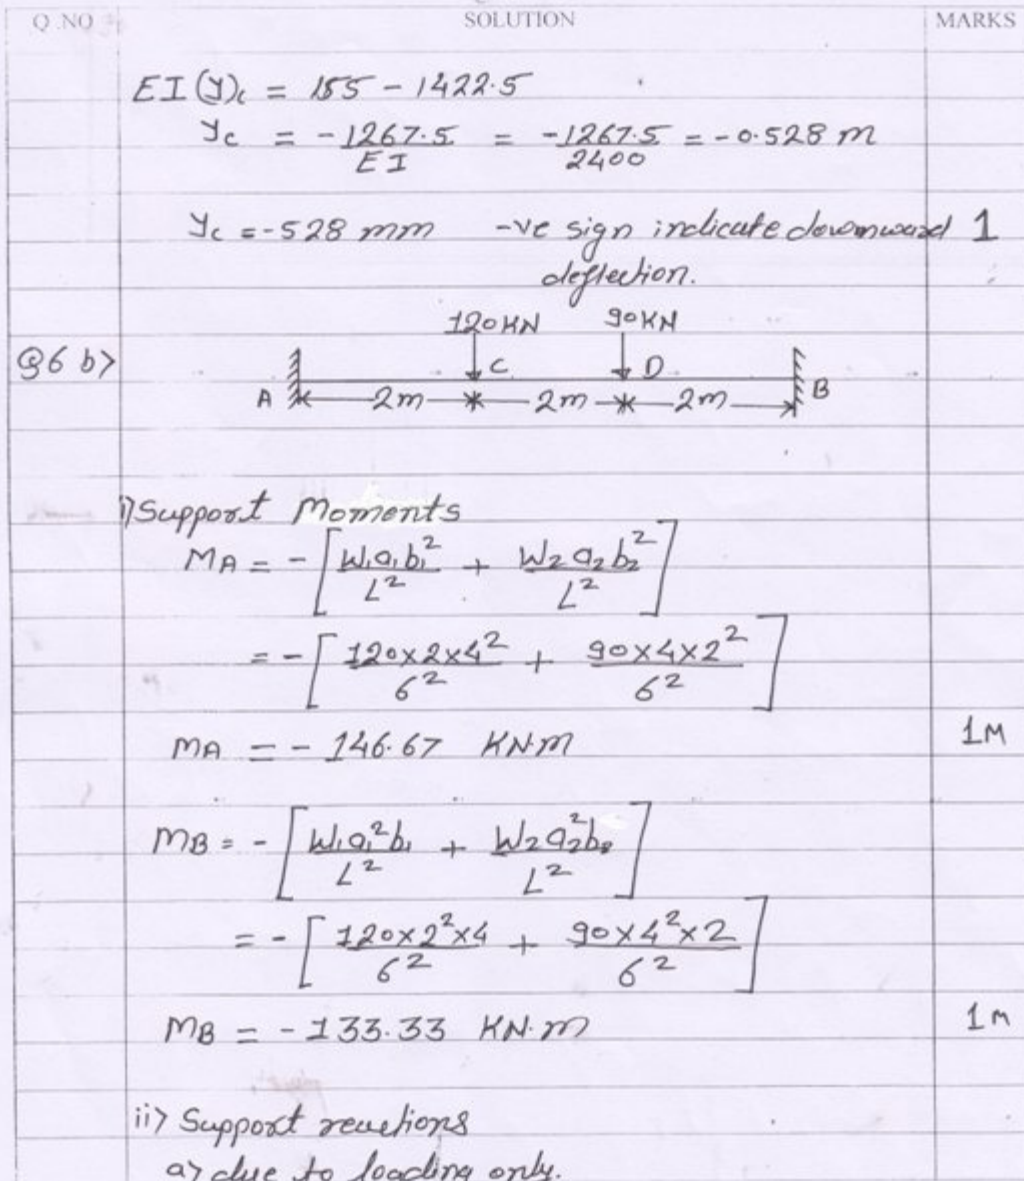 Q.NO SOLUTION MARKS
EI(y)c = 155 - 1422.5
yc = -1267.5/EI = -1267.5/2400 = -0.528 m
yc = -528 mm -ve sign indicate downward 1
deflection.
120KN 90KN
Q6 b> C D
A 2m 2m 2m B
i) Support Moments
MA = - [ W1a1b1²/L² + W2a2b2²/L² ]
= - [ 120×2×4²/6² + 90×4×2²/6² ]
MA = - 146.67 KN.m 1M
MB = - [ W1a1²b1/L² + W2a2²b2/L² ]
= - [ 120×2²×4/6² + 90×4²×2/6² ]
MB = - 133.33 KN.m 1M
ii> Support reactions
a> due to loading only.